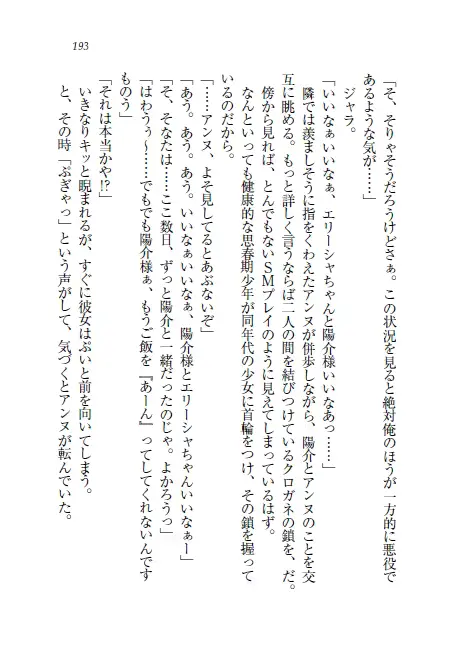 193
「そ、そりゃそうだろうけどさぁ。この状況を見ると絶対俺のほうが一方的に悪役で
あるような気が……」
ジャラ。
「いいなぁいいなぁ、エリーシャちゃんと陽介様いいなあっ……」
隣では羨ましそうに指をくわえたアンヌが併歩しながら、陽介とアンヌのことを交
互に眺める。もっと詳しく言うならば二人の間を結びつけているクロガネの鎖を、だ。
傍から見れば、とんでもないＳＭプレイのように見えてしまっているはず。
なんといっても健康的な思春期少年が同年代の少女に首輪をつけ、その鎖を握って
いるのだから。
「……アンヌ、よそ見してるとあぶないぞ」
「あう。あう。あう。いいなぁいいなぁ、陽介様とエリーシャちゃんいいなぁー」
「そ、そなたは……ここ数日、ずっと陽介と一緒だったのじゃ。よかろうっ」
「はわうぅ～……でもでも陽介様ぁ、もうご飯を『あーん』ってしてくれないんです
ものう」
「それは本当かや!?」
いきなりキッと睨まれるが、すぐに彼女はぷいと前を向いてしまう。
と、その時「ぷぎゃっ」という声がして、気づくとアンヌが転んでいた。